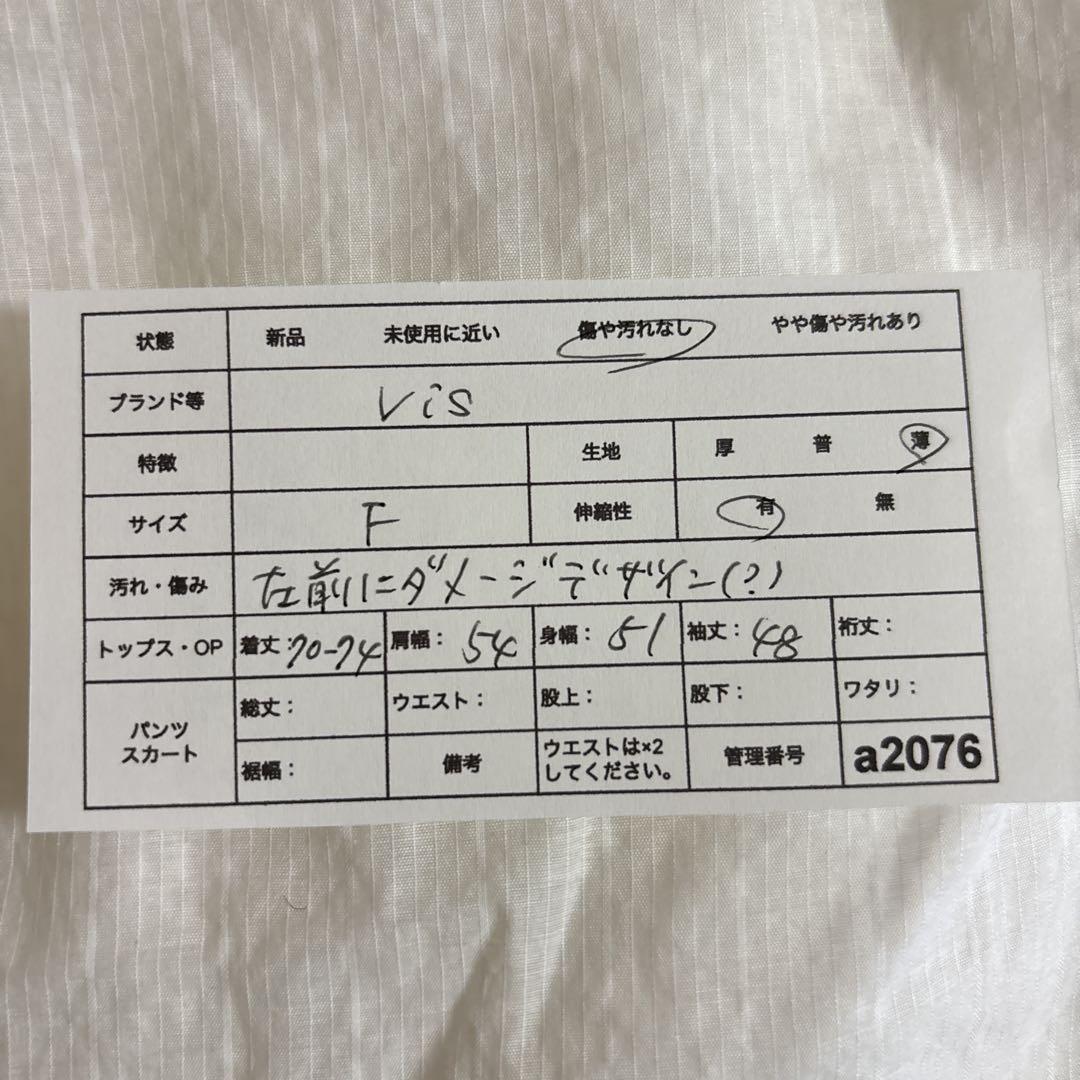 状態 新品 未使用に近い 傷や汚れなし やや傷や汚れあり
ブランド等 Vis
特徴 生地 厚 普 薄
サイズ F 伸縮性 有 無
汚れ・傷み 左前にダメージデザイン(?)
トップス・OP 着丈:70-74 肩幅: 54 身幅: 51 袖丈: 48 裄丈:
パンツ スカート 総丈: ウエスト: 股上: 股下: ワタリ:
裾幅: 備考 ウエストは×2 してください。 管理番号 a2076